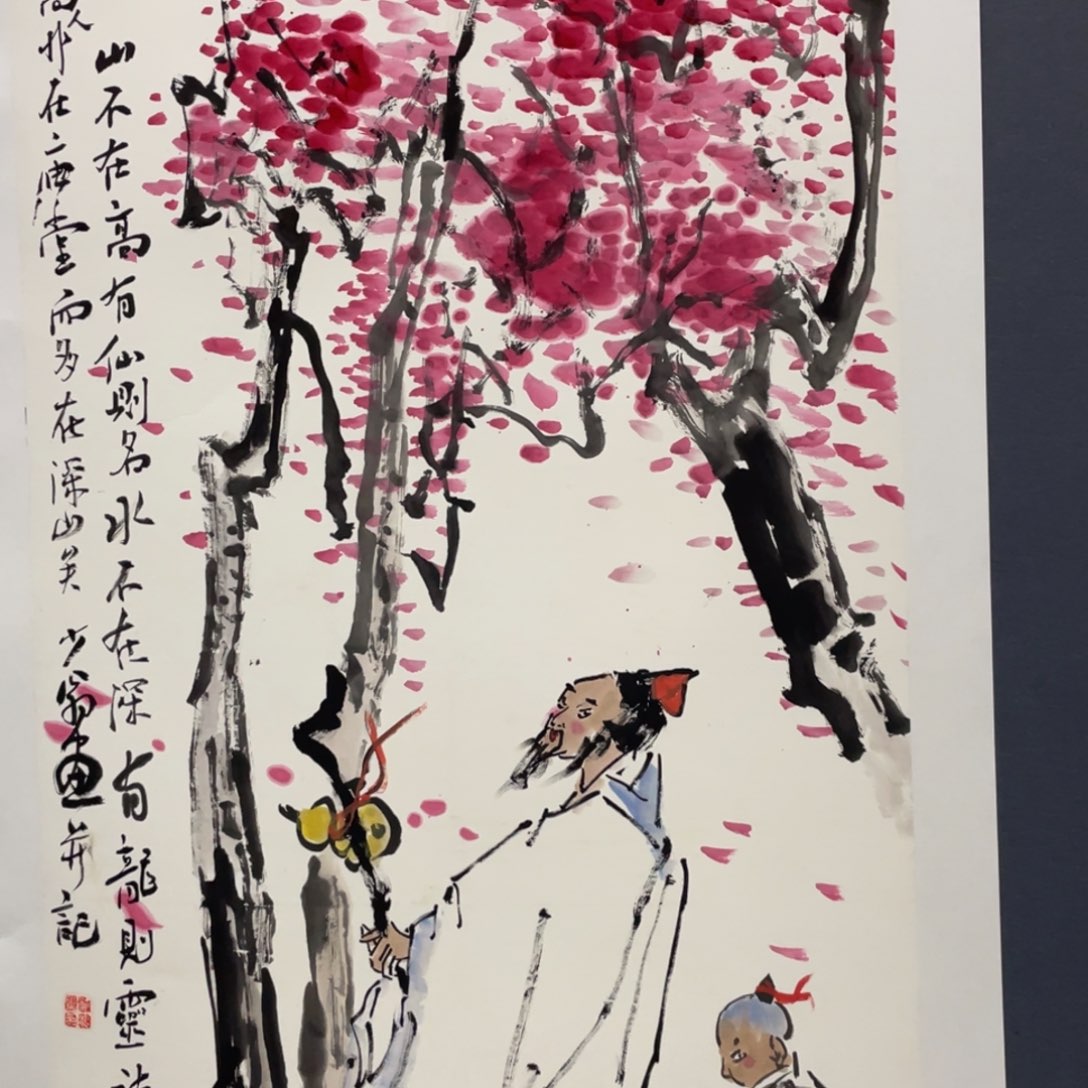 山不在高有仙則名水不在深有龍則靈
在庙堂而多在深山矣 少翁画并記